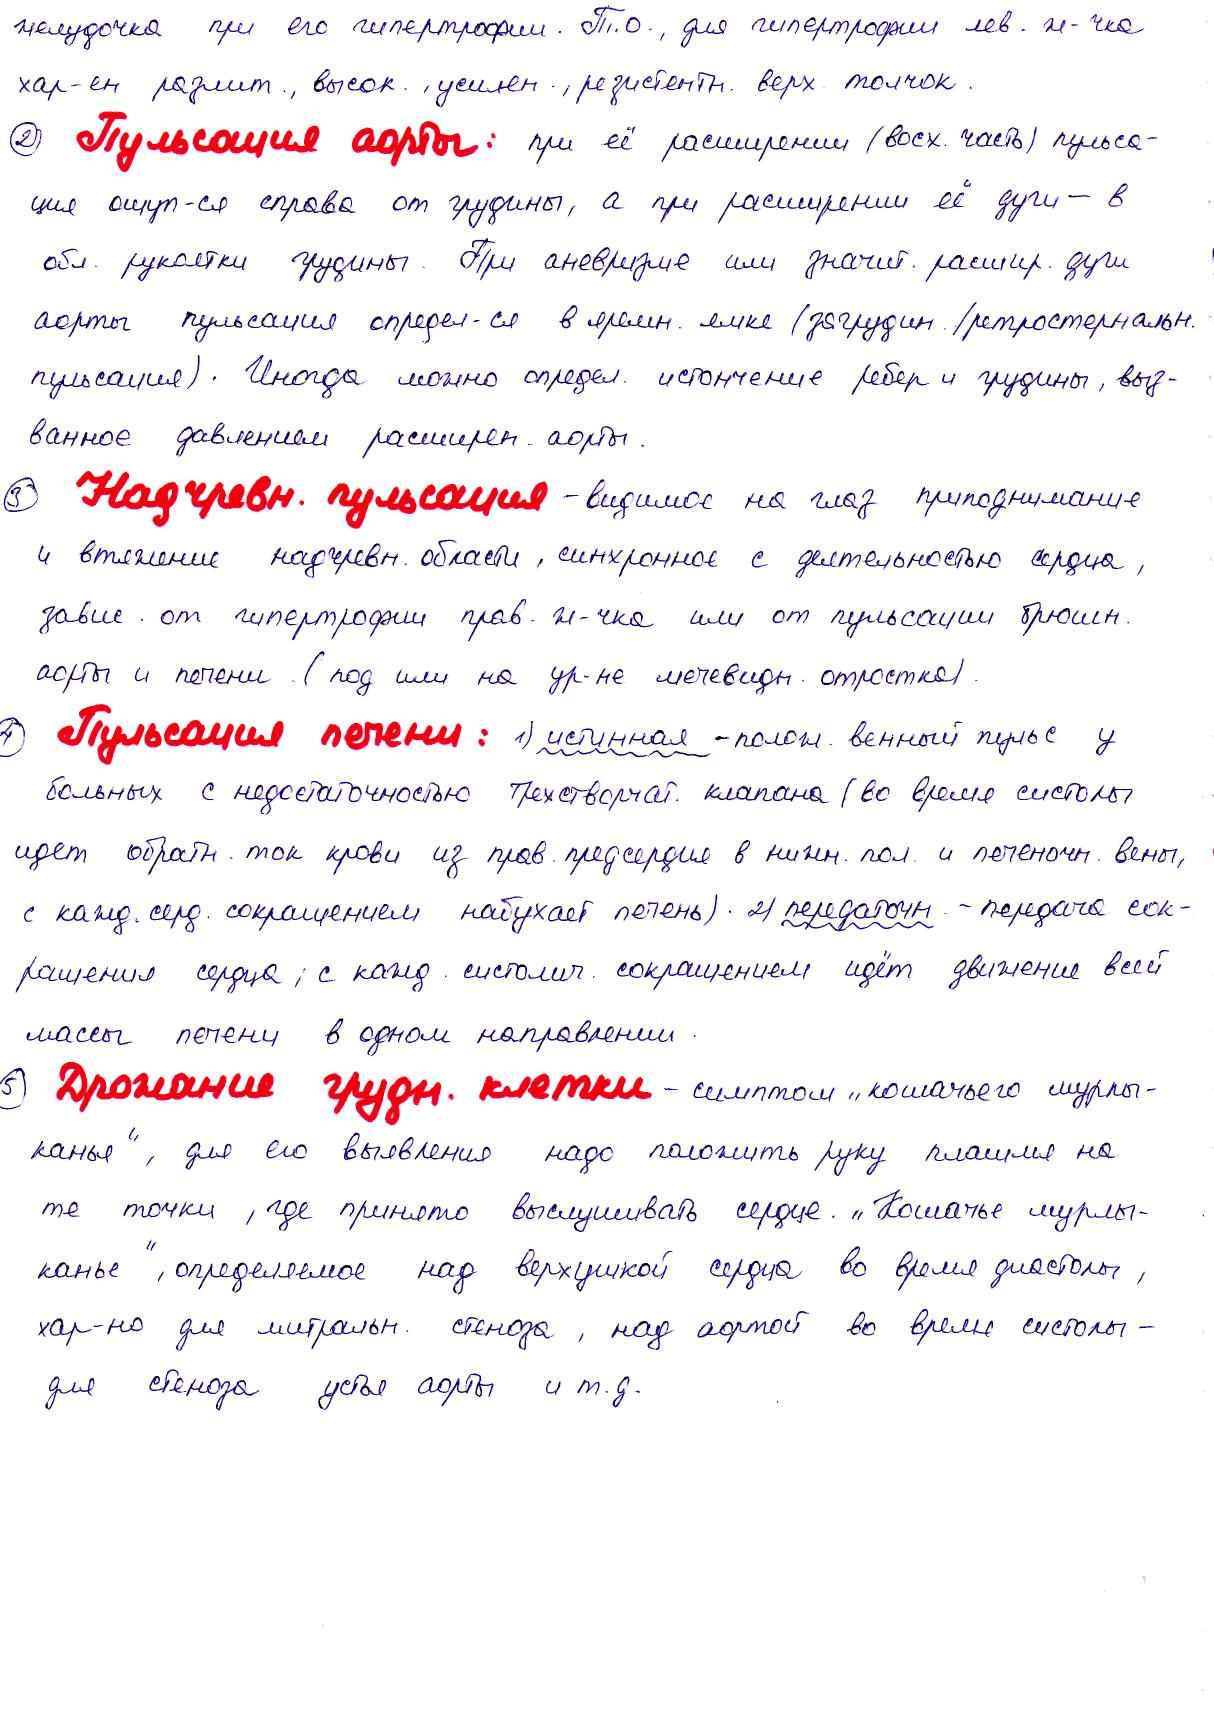 желудочка при его гипертрофии. Т.о., для гипертрофии лев. ж-чка
хар-ен разлит., высок., усилен., резистентн. верх. толчок.
② Пульсация аорты: при её расширении (восх. часть) пульса-
ция ощущ-ся справа от грудины, а при расширении её дуги — в
обл. рукоятки грудины. При аневризме или значит. расшир. дуги
аорты пульсация определ-ся в яремн. ямке (загрудин./ретростернальн.
пульсация). Иногда можно определ. истончение рёбер и грудины, выз-
ванное давлением расширен. аорты.
③ Надчревн. пульсация – видимое на глаз приподнимание
и втяжение надчревн. области, синхронное с деятельностью сердца,
завис. от гипертрофии прав. ж-чка или от пульсации брюшн.
аорты и печени. (под или на ур-не мечевидн. отростка).
④ Пульсация печени: 1) истинная – полож. венный пульс у
больных с недостаточностью трехстворчат. клапана (во время систолы
идет обратн. ток крови из прав. предсердия в нижн. пол. и печеночн. вены,
с кажд. серд. сокращением набухает печень). 2) передаточн. – передача сок-
ращения сердца; с кажд. систолич. сокращением идёт движение всей
массы печени в одном направлении.
⑤ Дрожание грудн. клетки – симптом „кошачьего мурлы-
канья“, для его выявления надо положить руку плашмя на
те точки, где принято выслушивать сердце. „Кошачье мурлы-
канье“, определяемое над верхушкой сердца во время диастолы,
хар-но для митральн. стеноза, над аортой во время систолы –
для стеноза устья аорты и т.д.